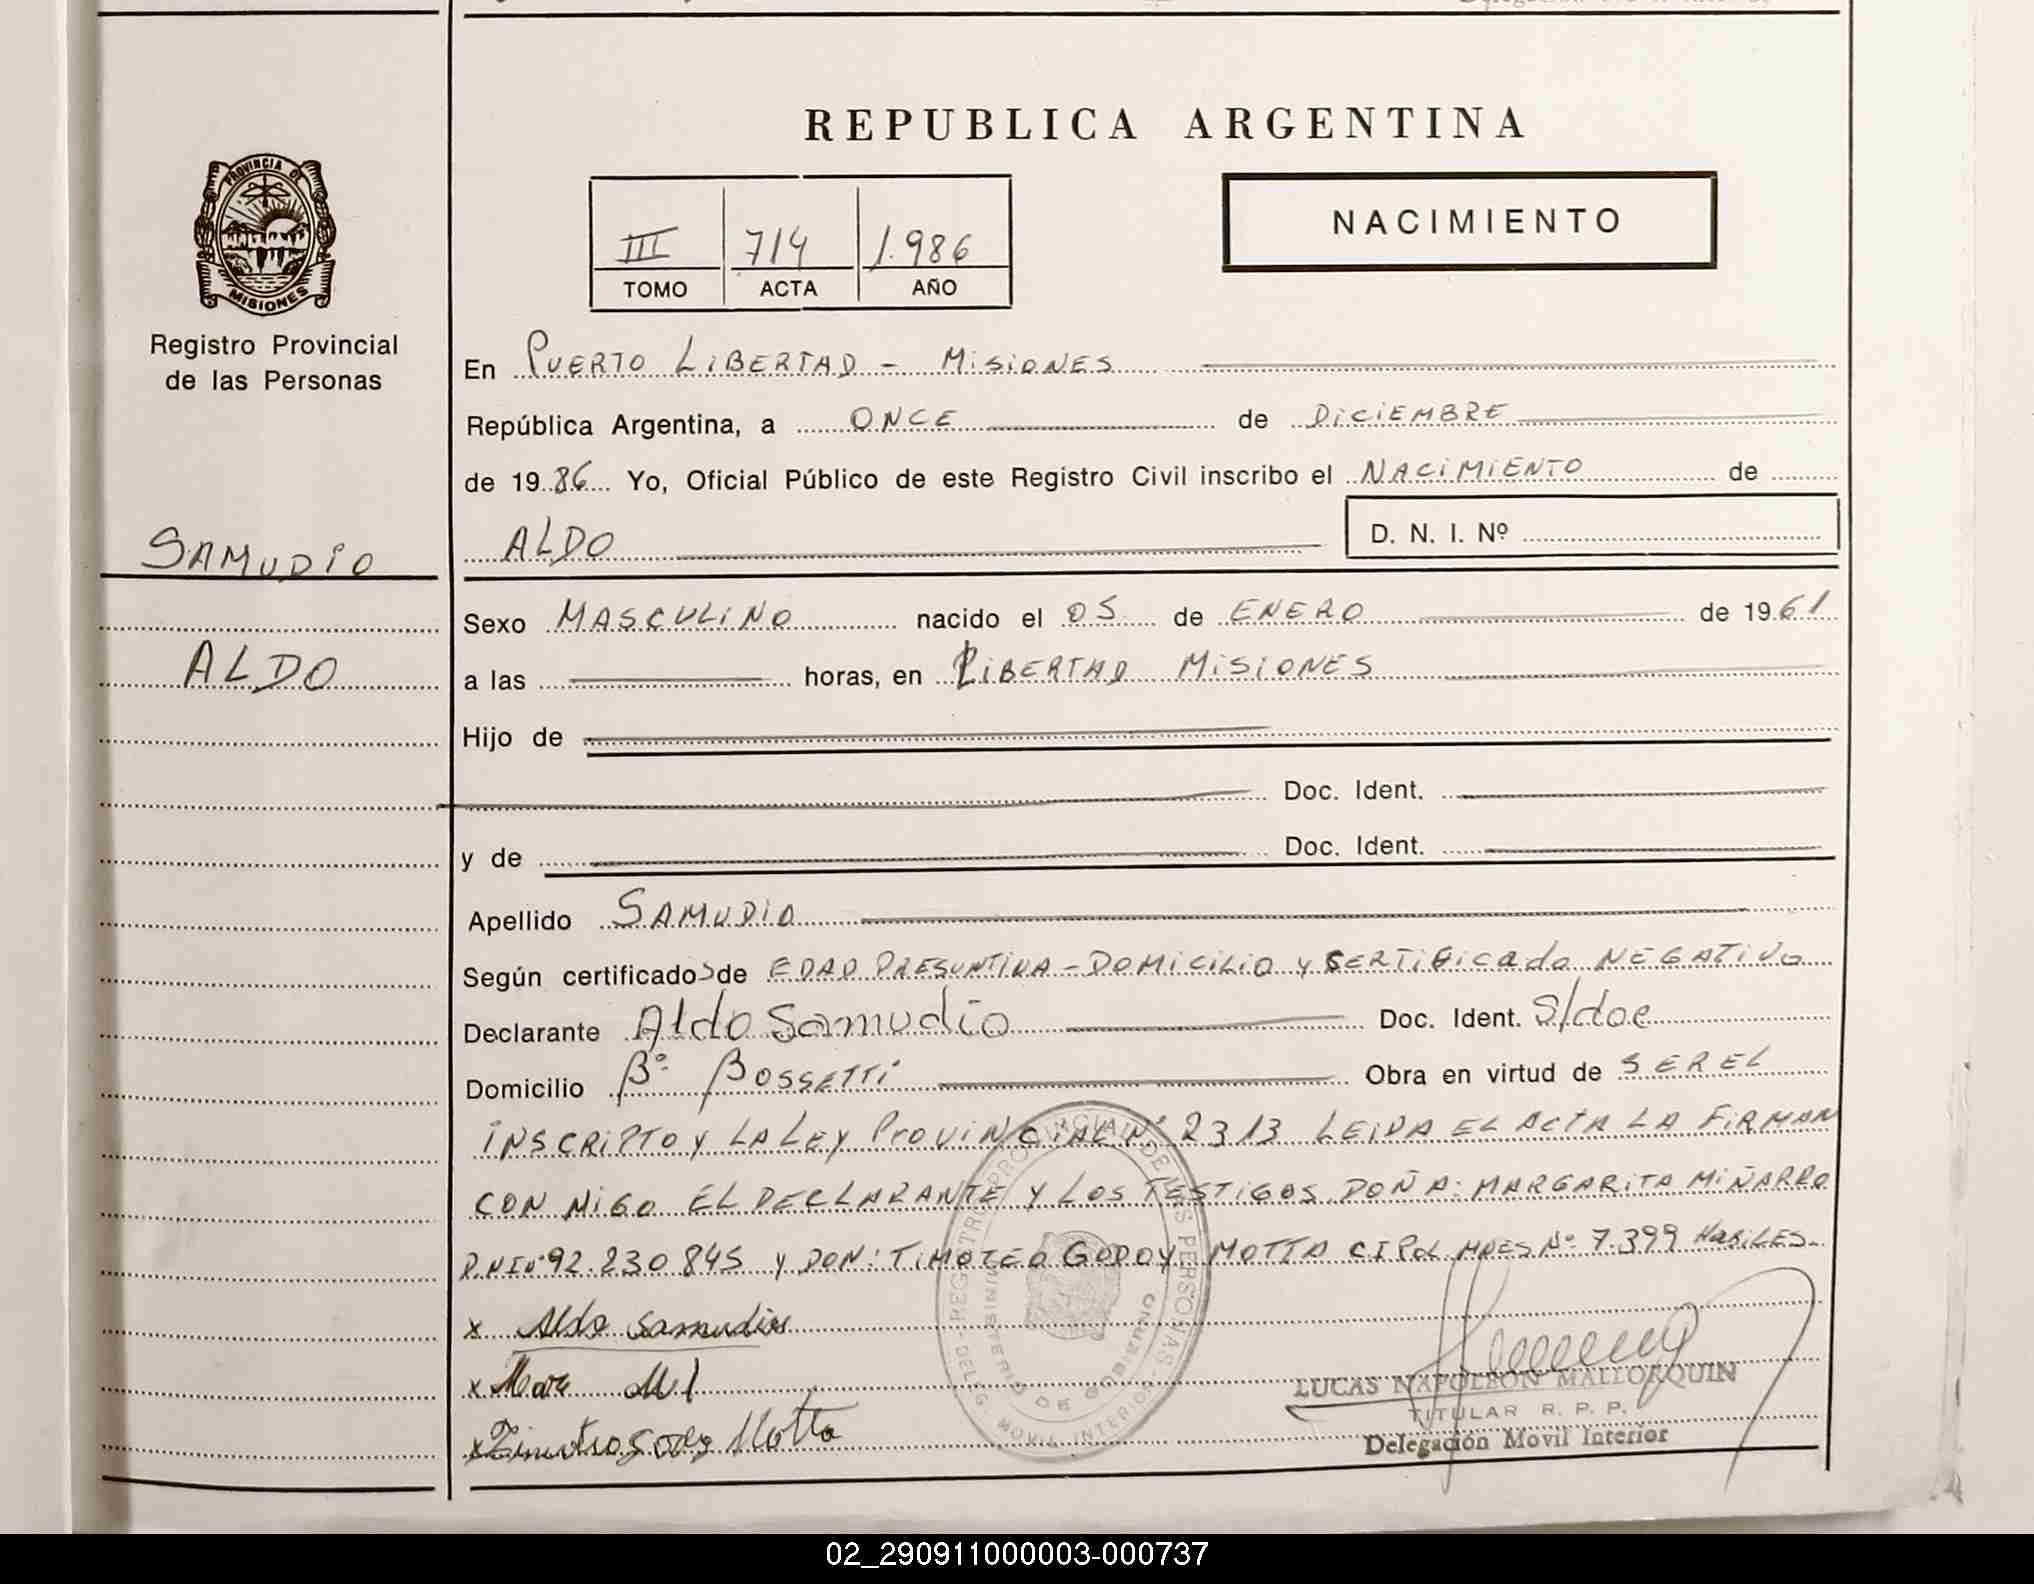 REPUBLICA ARGENTINA
PROVINCIA DE
MISIONES
Registro Provincial
de las Personas
III 714 1.986
TOMO ACTA AÑO
NACIMIENTO
En PUERTO LIBERTAD - MISIONES
República Argentina, a ONCE de DICIEMBRE
de 1986 Yo, Oficial Público de este Registro Civil inscribo el NACIMIENTO de
SAMUDIO
ALDO
D. N. I. Nº
Sexo MASCULINO nacido el 05 de ENERO de 1961
ALDO
a las horas, en LIBERTAD MISIONES
Hijo de
Doc. Ident.
y de Doc. Ident.
Apellido SAMUDIO
Según certificados de EDAD PRESUNTIVA - DOMICILIO Y SERTIFICADO NEGATIVO
Declarante Aldo Samudio Doc. Ident. S/doc
Domicilio Bº BOSSETTI Obra en virtud de SER EL
INSCRIPTO Y LA LEY PROVINCIAL Nº 2313 LEIDA EL ACTA LA FIRMAN
CON MIGO EL DECLARANTE Y LOS TESTIGOS DOÑA: MARGARITA MIÑARRO
D.N.I Nº 92.230 845 y DON: TIMOTEO GODOY MOTTA CI POL MNES Nº 7.399 HABILES.
x Aldo Samudio
x
x Godoy Motta
REGISTRO PROVINCIAL DE LAS PERSONAS
MINISTERIO DE GOBIERNO
DELEG. MOVIL INTERIOR
LUCAS NAPOLEON MALLORQUIN
TITULAR R. P. P.
Delegación Movil Interior
02_290911000003-000737